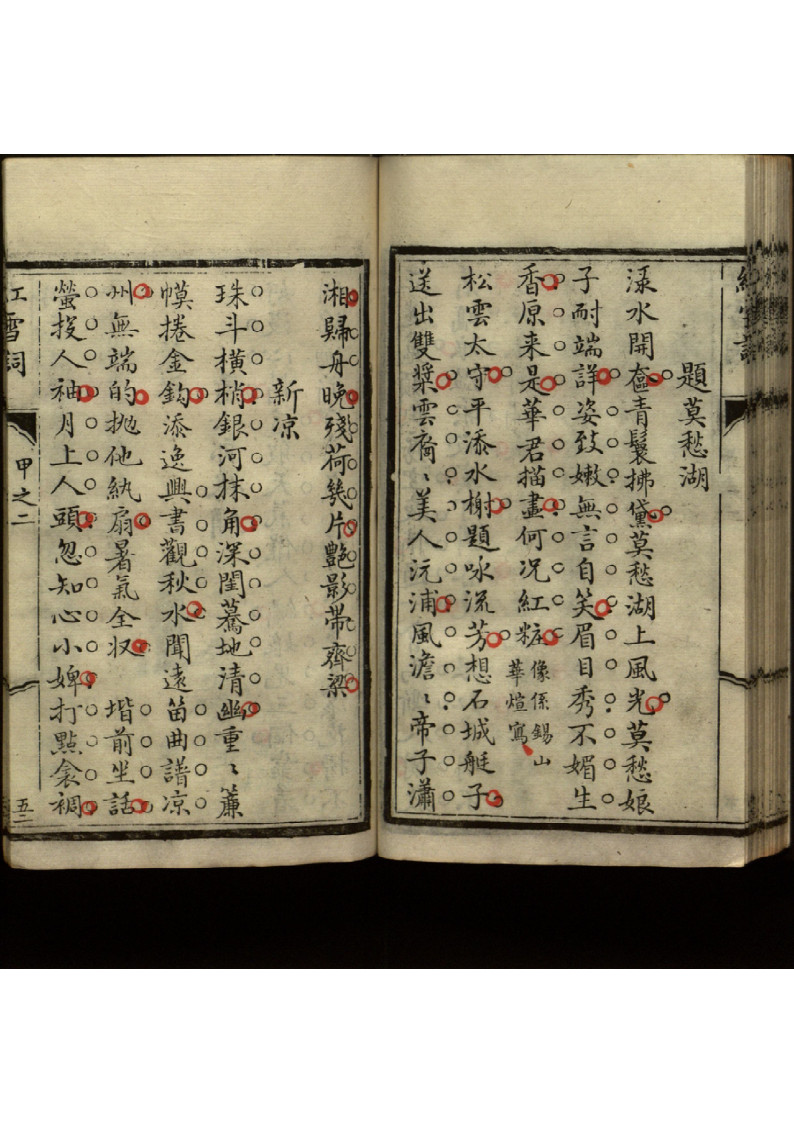 題莫愁湖
渌水開奩青鬟拂黛莫愁湖上風光莫愁娘
子耐端詳姿致嫩無言自笑眉目秀不媚生
香原来是華君描畫何况紅粧像係錫山華煊寫
松雲太守平添水榭題咏流芳想石城艇子
送出雙槳雲裔〻美人沅浦風澹〻帝子瀟
湘歸舟晚殘荷幾片艷影帶齊梁
新凉
珠斗橫梢銀河抹角深閨驀地清幽重〻簾
幙捲金鈎添逸興書觀秋水聞遠笛曲譜凉
州無端的抛他紈扇暑氣全収 堦前坐話
螢投人袖月上人頭忽知心小婢打點衾裯
紅雪詞
甲之二
五二